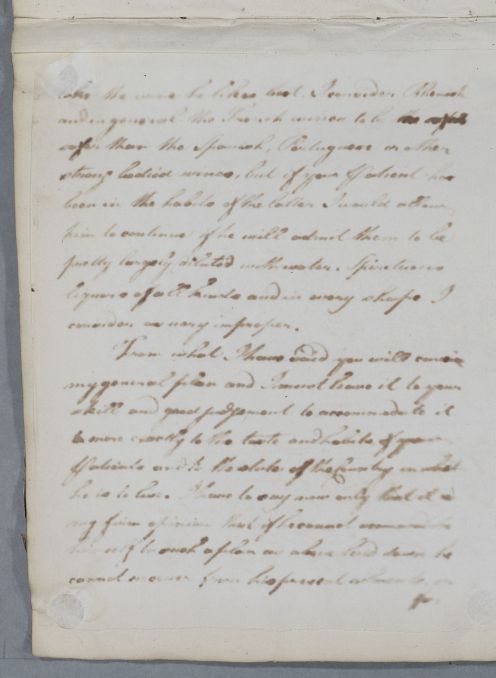 take the wine he likes best. I consider Rhenish
and in general the French wines to be
safer than the Spanish, Portuguese or other
strong bodied wines, but if your Patient has
been in the habits of the latter I would allow
him to continue if he will admit them to be
pretty largely diluted with water. Spirituous
liquors of all kinds and in every shape I
consider as very improper.
From what I have said you will conceive
my general plan and I must leave it to your
skill and good judgement to accommodate it
more exactly to the taste and habits of your
Patients and to the state of the Country in which
he is to live. I have to say now only that it is
my firm opinion that if he cannot accommodate
himself to such a plan as above laid down he
cannot recover from his present ailments, or